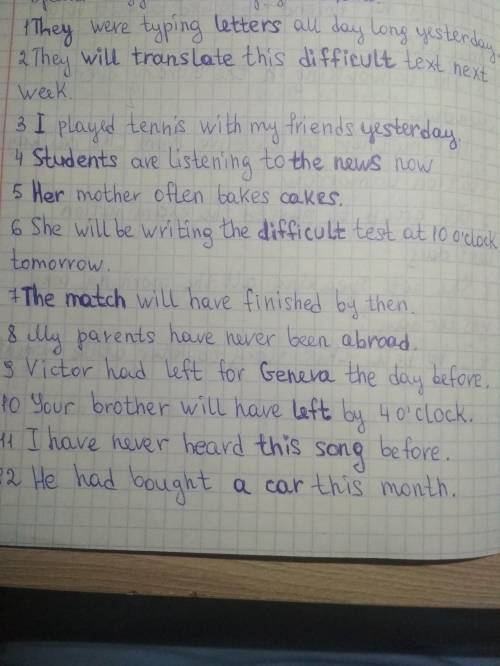 1 They were typing letters all day long yesterday
2 They will translate this difficult text next
week.
3 I played tennis with my friends yesterday.
4 Students are listening to the news now
5 Her mother often bakes cakes.
6 She will be writing the difficult test at 10 o'clock
tomorrow.
7 The match will have finished by then.
8 My parents have never been abroad.
9 Victor had left for Geneva the day before.
10 Your brother will have left by 4 o'clock.
11 I have never heard this song before.
12 He had bought a car this month.